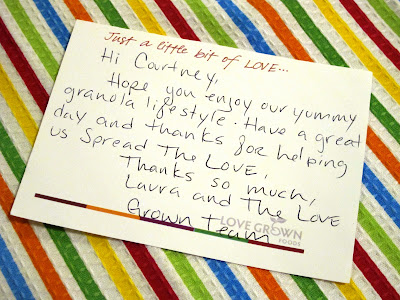 Just a little bit of LOVE...
Hi Courtney,
Hope you enjoy our yummy
granola lifestyle. Have a great
day and thanks for helping
us Spread The LOVE,
Thanks so much,
Laura and The LOVE
Grown Team
LOVE GROWN
FOODS